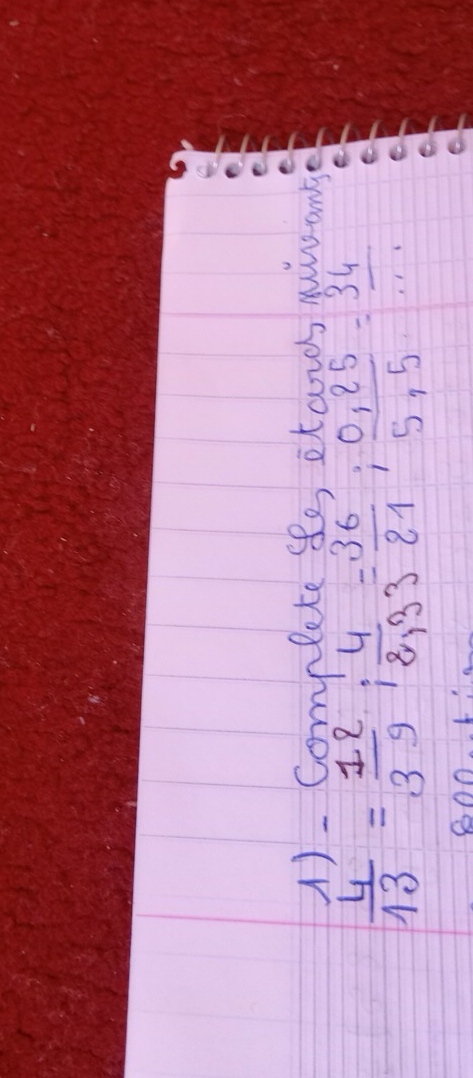 1) - Complete les étards suivants
4/13 = 12/39 ; 4/2,33 = 36/21 ; 0,25/5,5 = 34/...